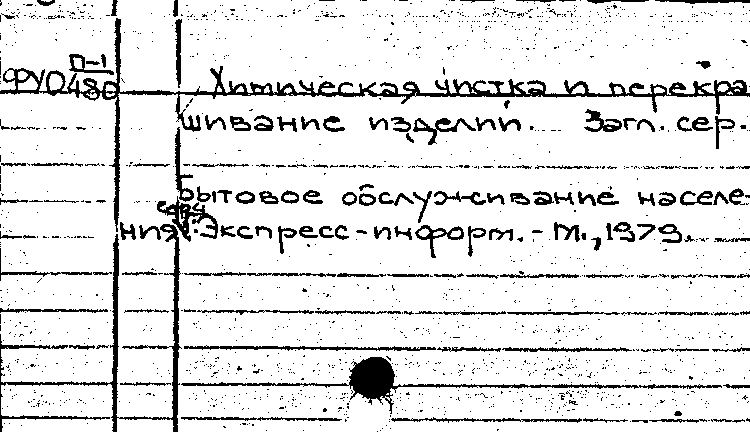 П-1
ФУ0480 Химическая чистка и перекра-
шивание изделий. Загл. сер.
Бытовое обслуживание населе-
ния: Экспресс-информ. - М., 1979.